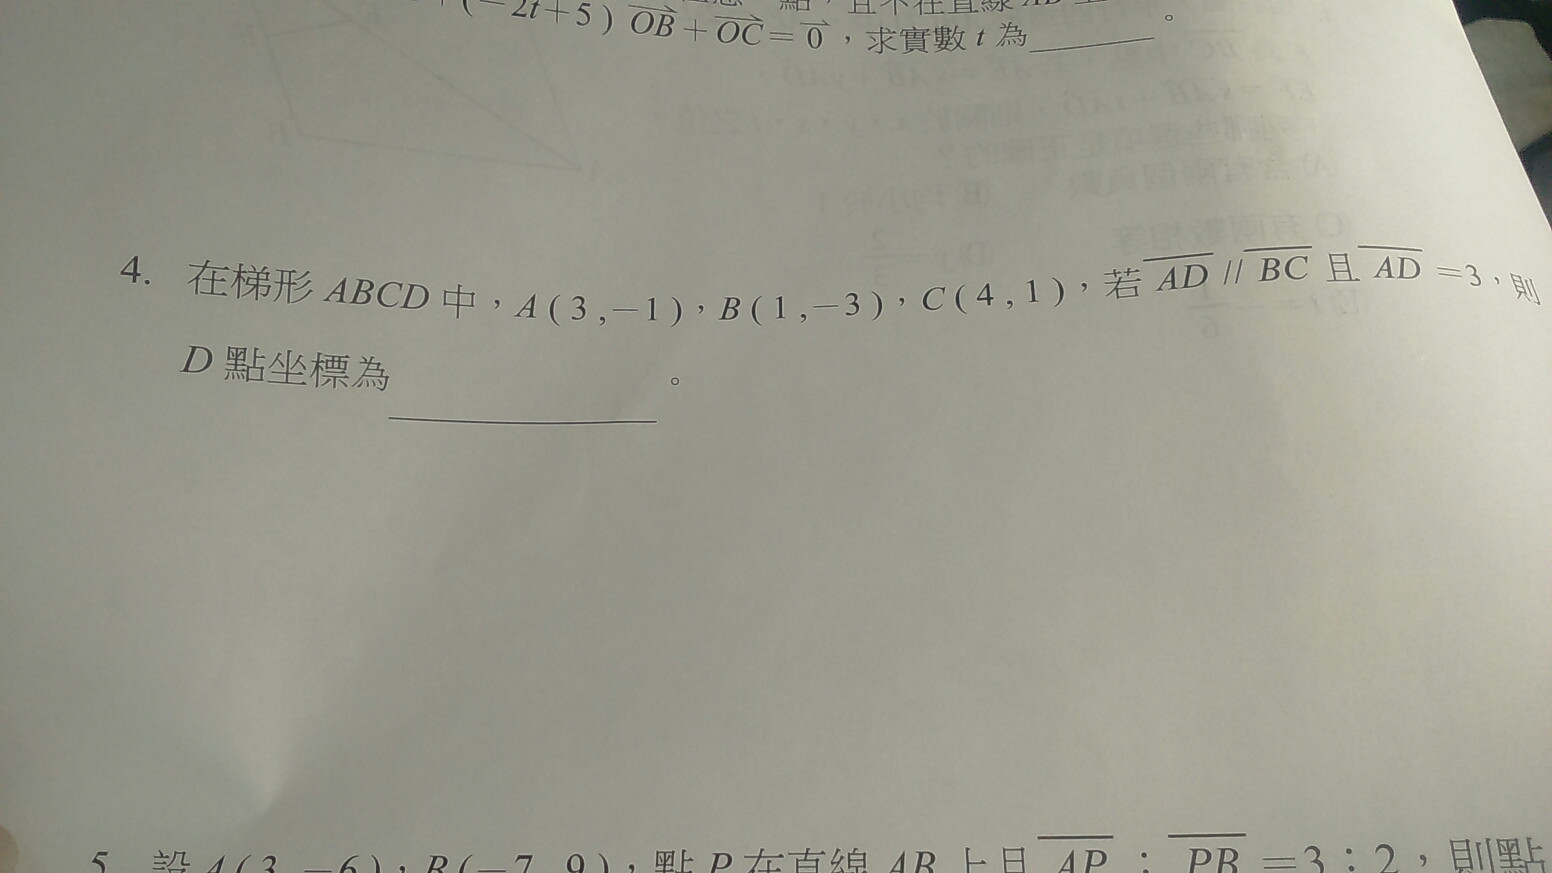 (−2t+5) OB + OC = 0，求實數 t 為______。
4. 在梯形 ABCD 中，A(3,−1)，B(1,−3)，C(4,1)，若 AD // BC 且 AD =3，則
D 點坐標為______。
5. 設 A(3,−6)，B(−7,9)，點 P 在直線 AB 上且 AP：PB =3：2，則點